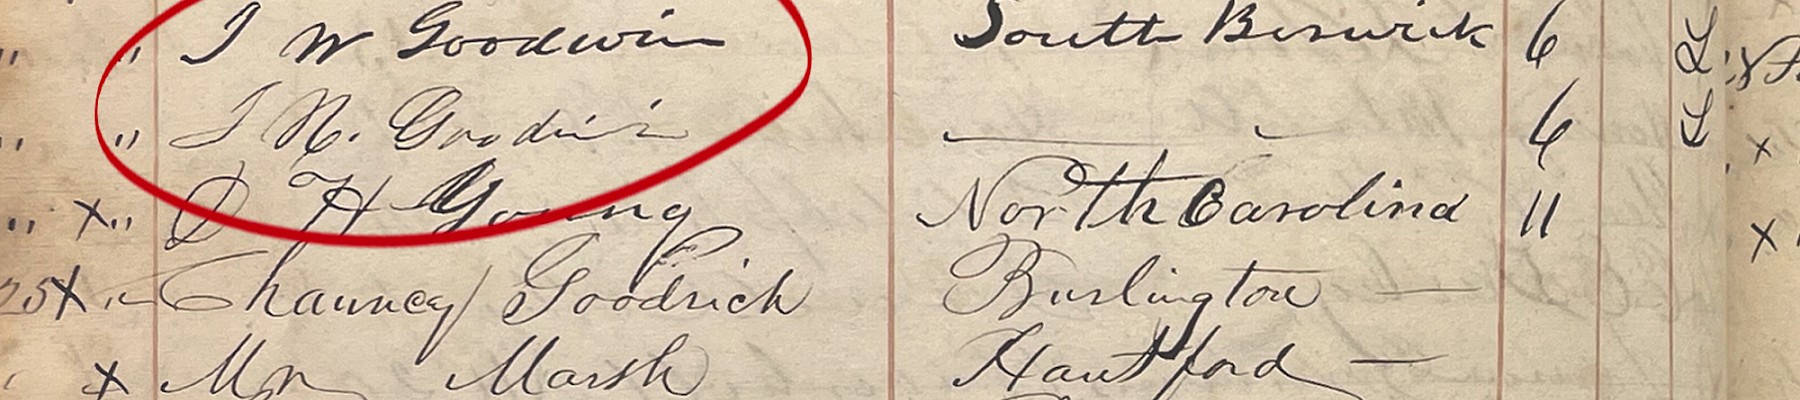 " " I W Goodwin South Berwick 6 L
" " I N. Goodwin — " — 6 L
" x " D H Young North Carolina 11
25 x " Chauncey Goodrich Burlington —
x Mr Marsh Hartford —